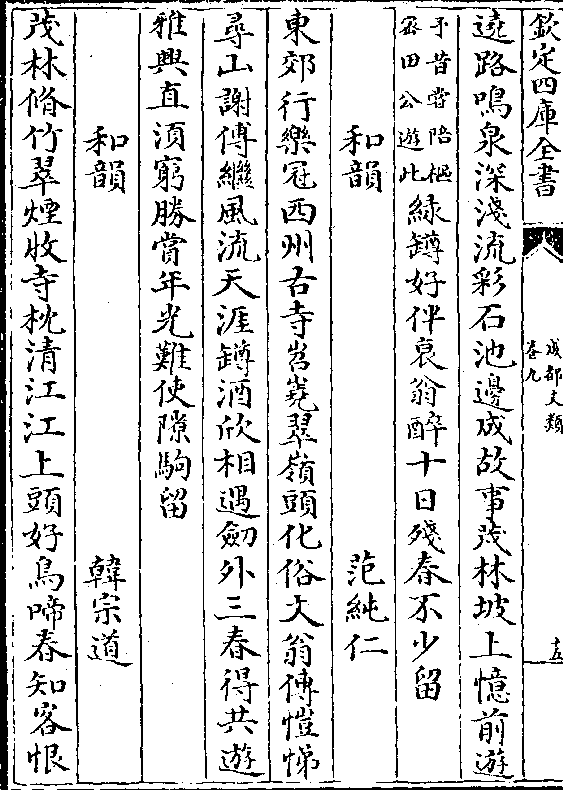 欽定四庫全書
成都文類
卷九
十五
遶路鳴泉深淺流彩石池邊成故事茂林坡上憶前遊
予昔嘗陪樞
密田公遊此
綠罇好伴衰翁醉十日殘春不少留
和韻
范純仁
東郊行樂冠西州古寺岧嶤翠嶺頭化俗文翁傳愷悌
尋山謝傅繼風流天涯罇酒欣相遇劒外三春得共遊
雅興直須窮勝賞年光難使隙駒留
和韻
韓宗道
茂林脩竹翠煙收寺枕清江江上頭好鳥啼春知客恨